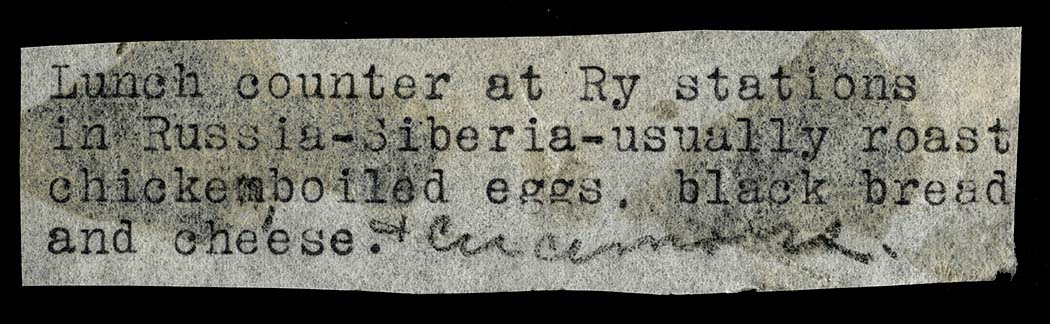 Lunch counter at Ry stations
in Russia-Siberia-usually roast
chicken,boiled eggs, black bread
and cheese. &